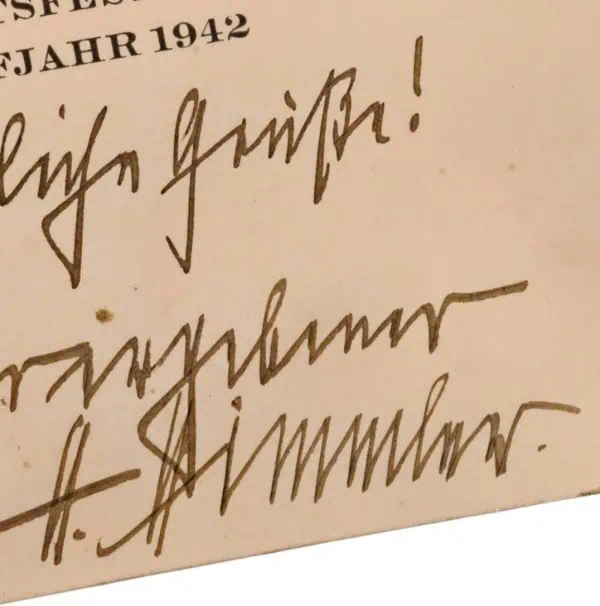 TSFES
FJAHR 1942
liche Grüße!
r ergebener
H. Himmler.